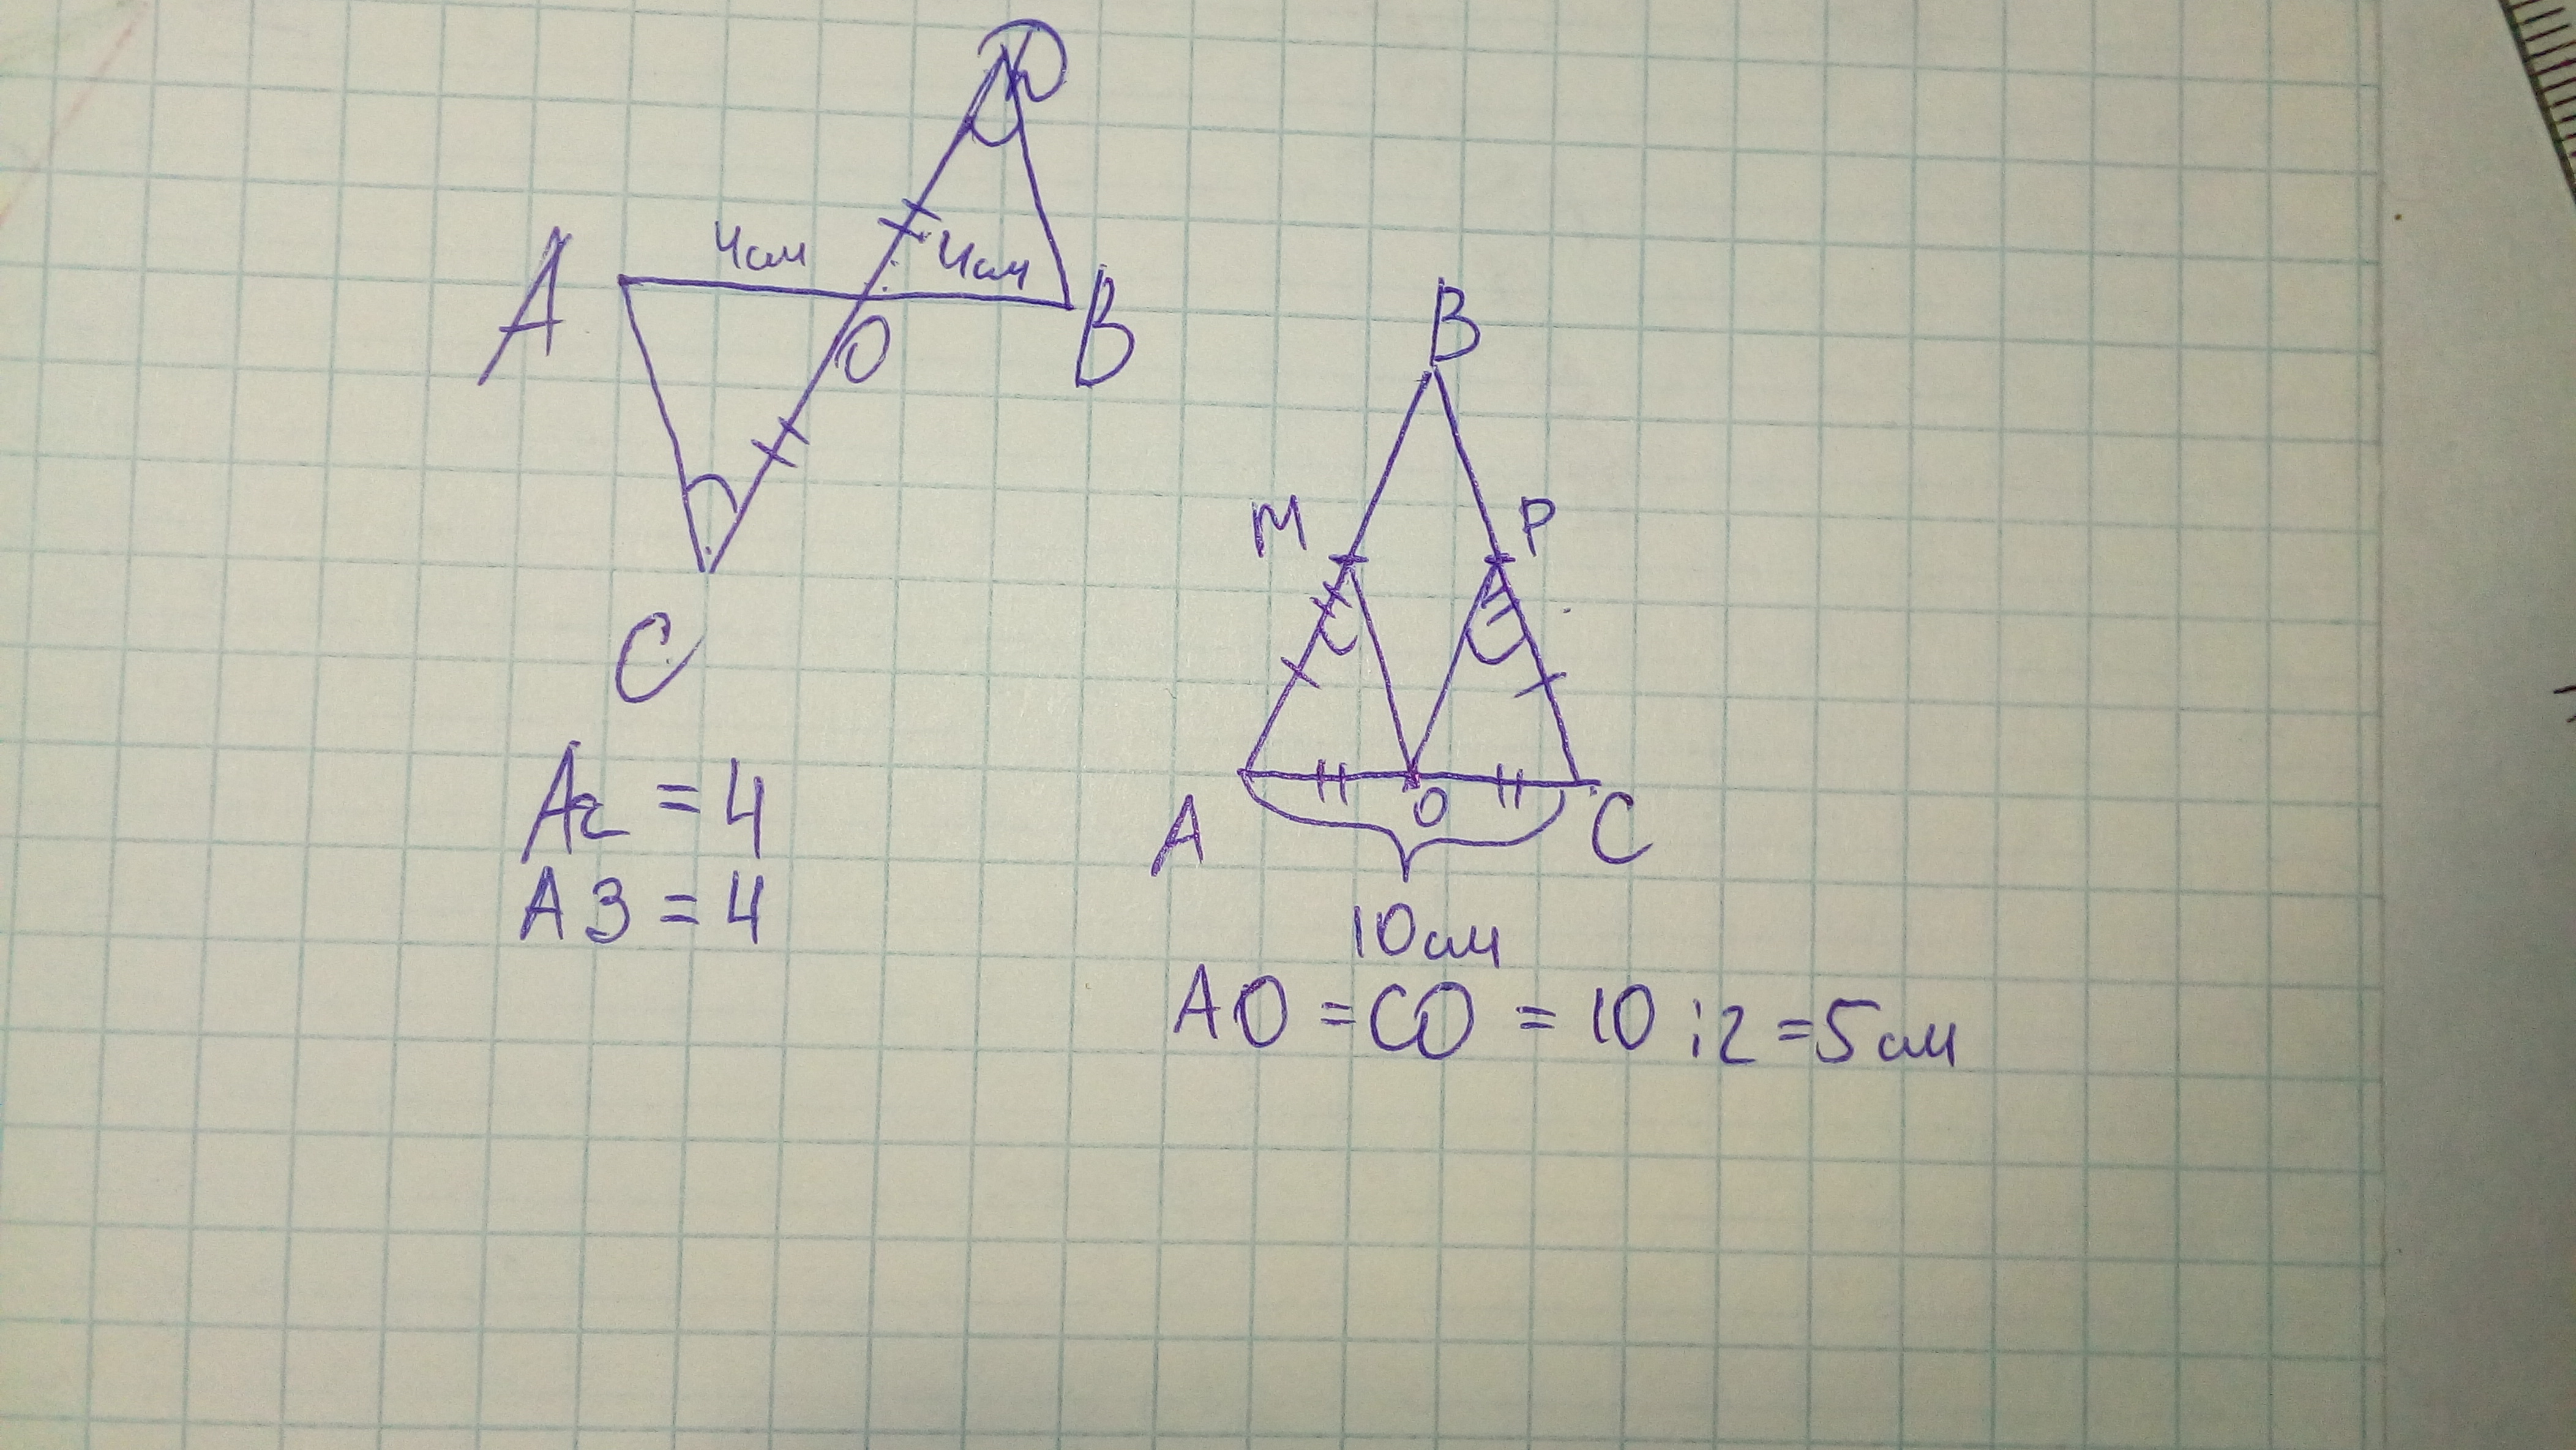 D
4см 4см
A O B
C
B
M P
A O C
10см
Aг = 4
A3 = 4
AO = CO = 10 : 2 = 5см